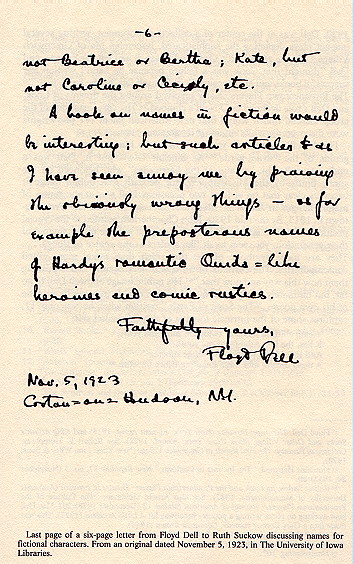 -6-
not Beatrice or Bertha; Kate, but
not Caroline or Cecily, etc.
A book on names in fiction would
be interesting; but such articles as
I have seen annoy me by praising
the obviously wrong things — as for
example the preposterous names
of Hardy's romantic Ouida=like
heroines and comic rustics.
Faithfully yours,
Floyd Dell
Nov. 5, 1923
Croton=on=Hudson, N.Y.
Last page of a six-page letter from Floyd Dell to Ruth Suckow discussing names for
fictional characters. From an original dated November 5, 1923, in The University of Iowa
Libraries.